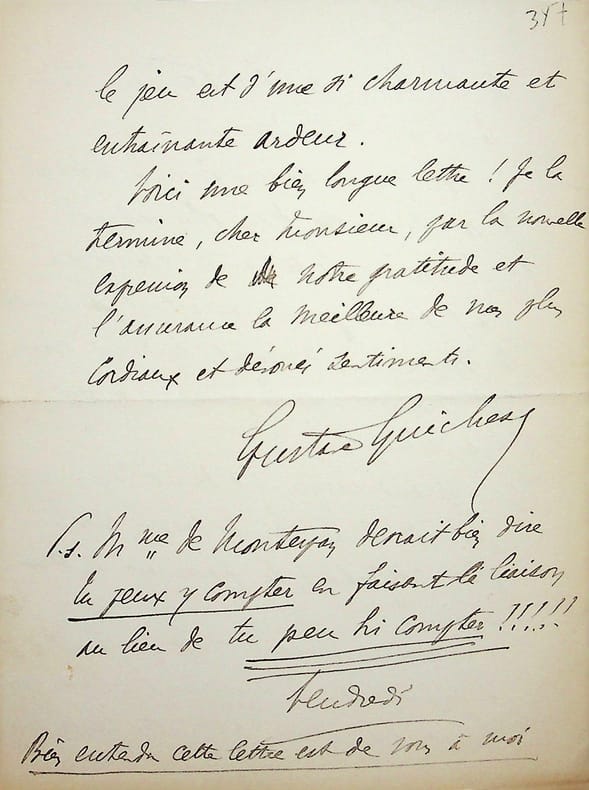 357
le jeu est d'une si charmante et
entraînante ardeur.
Voici une bien longue lettre ! Je la
termine, cher Monsieur, par la nouvelle
expression de notre gratitude et
l'assurance la meilleure de nos plus
cordiaux et dévoués sentiments.
Gustave Guiches
P.S. Mme de devrait bien dire
tu peux y compter en faisant la liaison
au lieu de tu peu hi compter !!!!!
Vendredi
Bien entendu cette lettre est de vous à moi